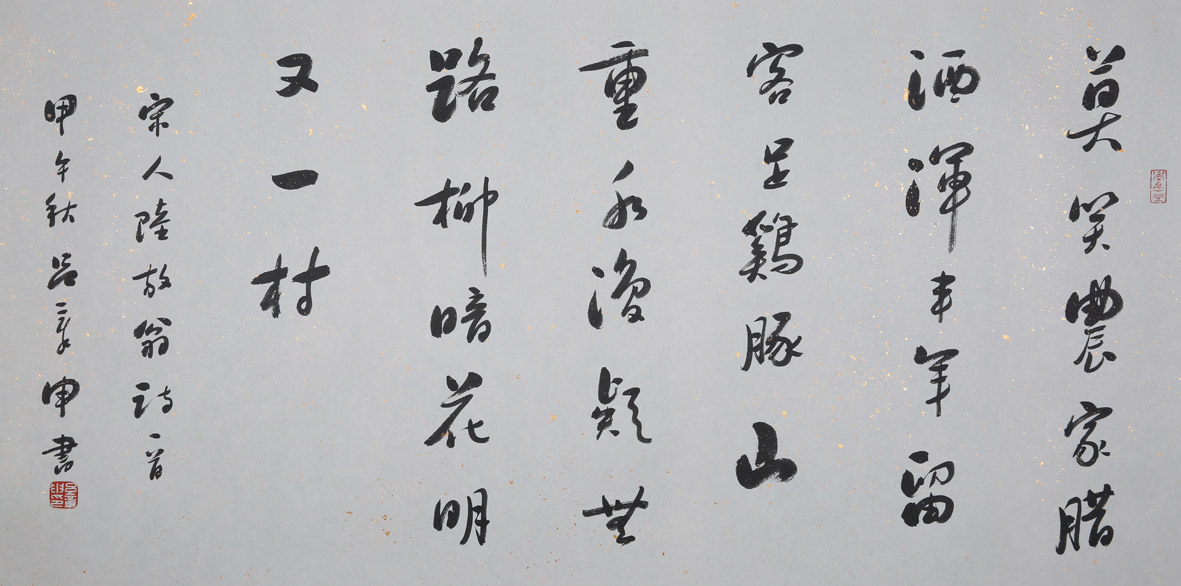 莫笑農家腊
酒渾丰年留
客足鷄豚山
重水複疑無
路柳暗花明
又一村
宋人陸放翁詩一首
甲午秋吕章申書